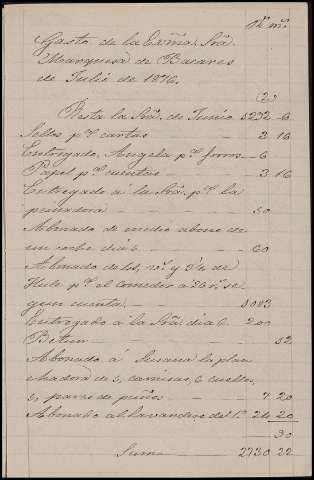 Rs. ms.
Gasto de la Exma. Sra.
Marquesa de Bacares
de Julio de 1876.
(2)
Resta la Sra. de Junio 6
Sellos pa. cartas 3 16
Entregado, Angela pa. 6
Papel pa. cuentas 3 16
Entregado á la Sra. pa. la
peinadora 50
Abonado de medio abono de
un coche dia 6 60
Abonado de y de
Hule pa. el comedor á 26 rs. se
gun cuenta
Entregado á la Sra. dia 6 200
Betun 32
Abonado á Susana la plan
chadora de 5, camisas, 6 cuellos,
5, pares de puños 7 20
Abonado al lavandero del 1o. 24 20
30
Suma 2730 22